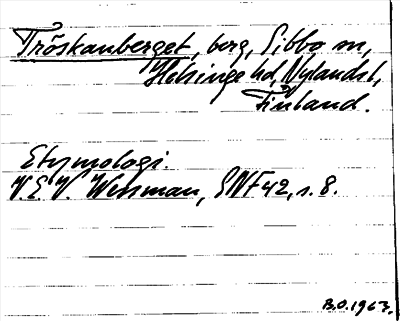 Tröskanberget, berg, Sibbo sn,
Helsinge hd, Nylandsl,
Finland.
Etymologi.
V.E.V. Wessman, SNF 42, s. 8.
B.O. 1963.